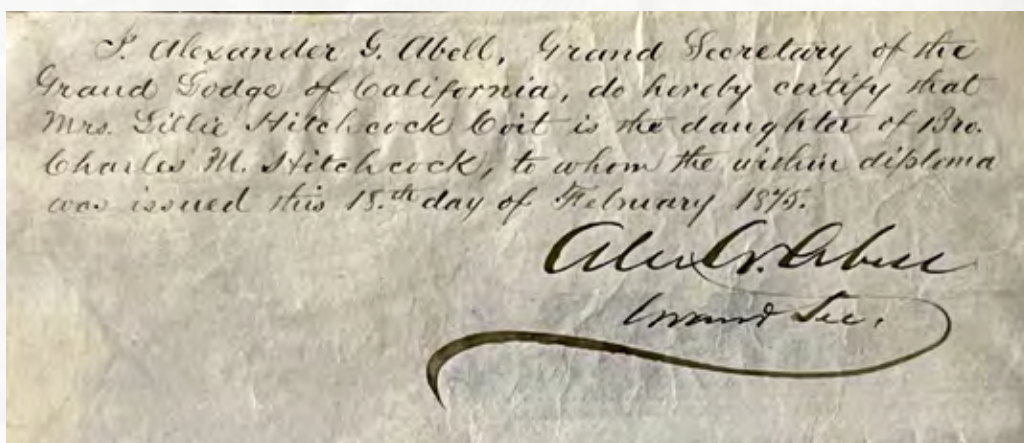 I, Alexander G. Abell, Grand Secretary of the
Grand Lodge of California, do hereby certify that
Mrs. Lillie Hitchcock Coit is the daughter of Bro.
Charles M. Hitchcock, to whom the within diploma
was issued this 18.th day of February 1875.
Alex G. Abell
Grand Sec.